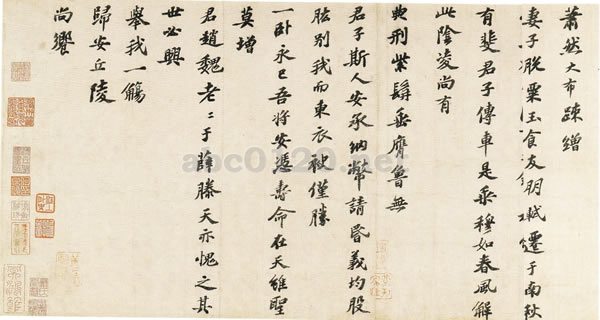 蕭然大布疎繒
妻子脫粟玉食友朋軾遷于南秋
有斐君子傳車是乘穆如春風解
此陰淩尚有
典刑紫髯垂膺魯無
君子斯人安承納幣請昏義均股
肱別我而東衣袂僅勝
一卧永已吾將安憑壽命在天雖聖
莫增
君趙魏老〻于薛滕天亦愧之其
世必興
舉我一觴
歸安丘陵
尚饗